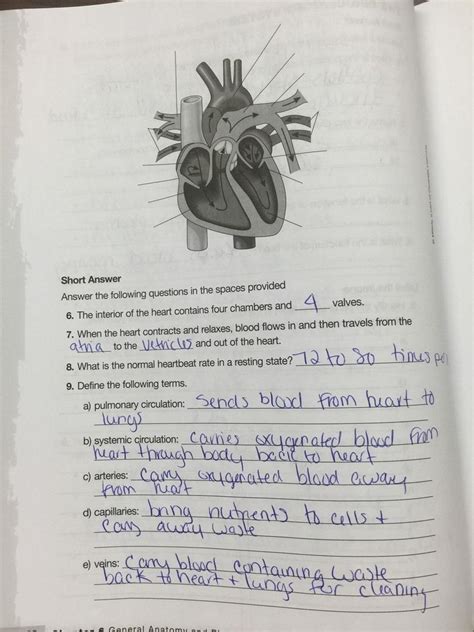 Short Answer
Answer the following questions in the spaces provided
6. The interior of the heart contains four chambers and 4 valves.
7. When the heart contracts and relaxes, blood flows in and then travels from the
atria to the Vetricles and out of the heart.
8. What is the normal heartbeat rate in a resting state? 72 to 80 times per
9. Define the following terms.
a) pulmonary circulation: Sends blood from heart to
lungs
b) systemic circulation: Carries oxygenated blood from
heart through body back to heart
c) arteries: Carry oxygenated blood away
from heart
d) capillaries: bring nutrients to cells +
Carry away waste
e) veins: Carry blood containing waste
back to heart + lungs for cleaning
General Anatomy and